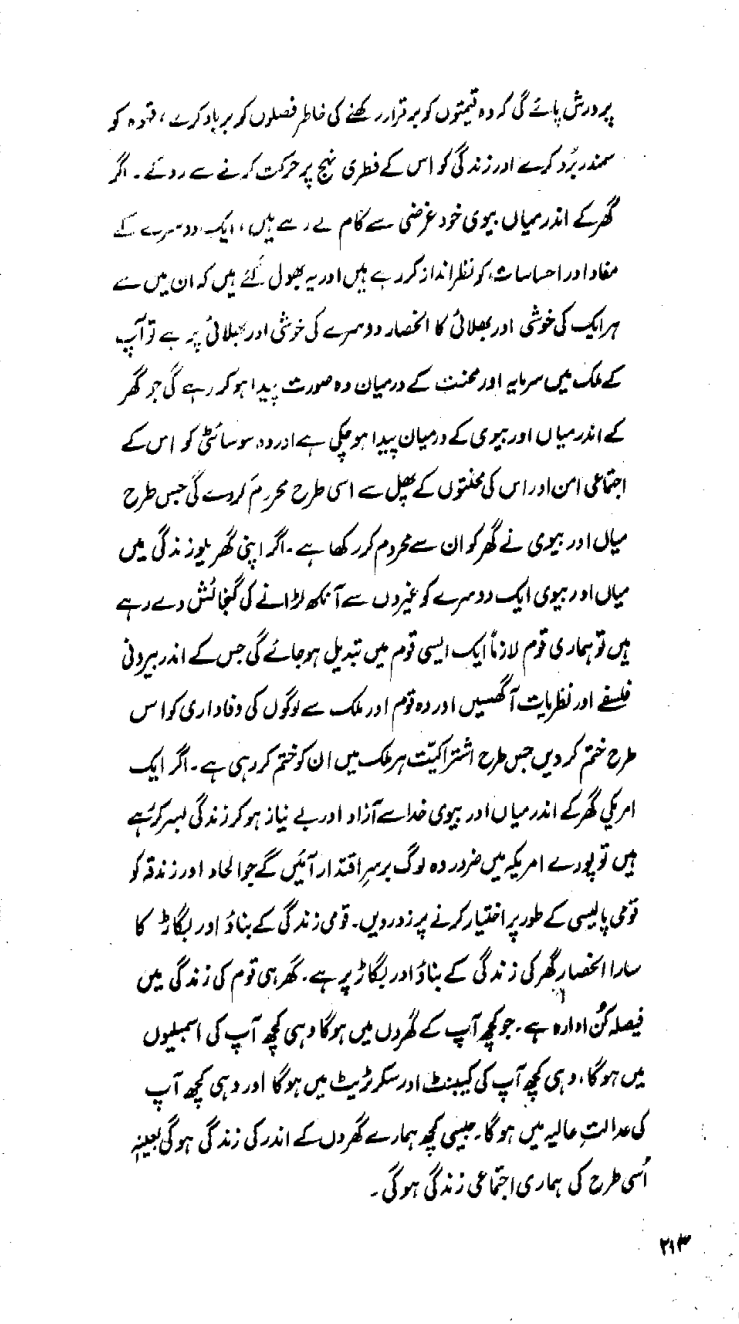 پرورش پائے گی کہ وہ قیمتوں کو برقرار رکھنے کی خاطر فصلوں کو برباد کرے، قہوہ کو
سمندر بُرد کرے اور زندگی کو اس کے فطری نہج پر حرکت کرنے سے روکے۔ اگر
گھر کے اندر میاں بیوی خود غرضی سے کام لے رہے ہیں، ایک دوسرے کے
مفاد اور احساسات کو نظر انداز کر رہے ہیں اور یہ بھول گئے ہیں کہ ان میں سے
ہر ایک کی خوشی اور بھلائی کا انحصار دوسرے کی خوشی اور بھلائی پر ہے تو آپ
کے ملک میں سرمایہ اور محنت کے درمیان وہ صورت پیدا ہو کر رہے گی جو گھر
کے اندر میاں اور بیوی کے درمیان پیدا ہو چکی ہے اور وہ سوسائٹی کو اس کے
اجتماعی امن اور اس کی محنتوں کے پھل سے اسی طرح محروم کر دے گی جس طرح
میاں اور بیوی نے گھر کو ان سے محروم کر رکھا ہے۔ اگر اپنی گھریلو زندگی میں
میاں اور بیوی ایک دوسرے کو غیروں سے آنکھ لڑانے کی گنجائش دے رہے
ہیں تو ہماری قوم لازماً ایک ایسی قوم میں تبدیل ہو جائے گی جس کے اندر بیرونی
فلسفے اور نظریات آ گھسیں اور وہ قوم اور ملک سے لوگوں کی وفاداری کو اس
طرح ختم کر دیں جس طرح اشتراکیّت ہر ملک میں ان کو ختم کر رہی ہے۔ اگر ایک
امریکی گھر کے اندر میاں اور بیوی خدا سے آزاد اور بے نیاز ہو کر زندگی بسر کر رہے
ہیں تو پورے امریکہ میں ضرور وہ لوگ برسرِ اقتدار آئیں گے جو الحاد اور زندقہ کو
قومی پالیسی کے طور پر اختیار کرنے پر زور دیں۔ قومی زندگی کے بناؤ اور بگاڑ کا
سارا انحصار گھر کی زندگی کے بناؤ اور بگاڑ پر ہے۔ گھر ہی قوم کی زندگی میں
فیصلہ کُن ادارہ ہے۔ جو کچھ آپ کے گھروں میں ہوگا وہی کچھ آپ کی اسمبلیوں
میں ہوگا، وہی کچھ آپ کی کیبنٹ اور سکرٹریٹ میں ہوگا اور وہی کچھ آپ
کی عدالتِ عالیہ میں ہوگا۔ جیسی کچھ ہمارے گھروں کے اندر کی زندگی ہوگی بعینہٖ
اُسی طرح کی ہماری اجتماعی زندگی ہوگی۔
۲۱۳